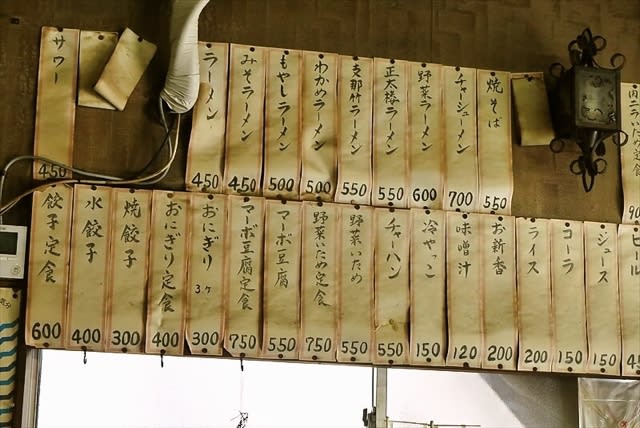 サワー 450
ラーメン 450
みそラーメン 450
もやしラーメン 500
わかめラーメン 500
支那竹ラーメン 550
正太楼ラーメン 550
野菜ラーメン 600
チャーシューメン 700
焼そば 550
餃子定食 600
水餃子 400
焼餃子 300
おにぎり定食 400
おにぎり 3ヶ 300
マーボ豆腐定食 750
マーボ豆腐 550
野菜いため定食 750
野菜いため 550
チャーハン 550
冷やっこ 150
味噌汁 120
お新香 200
ライス 200
コーラ 150
ジュース 150
ビール